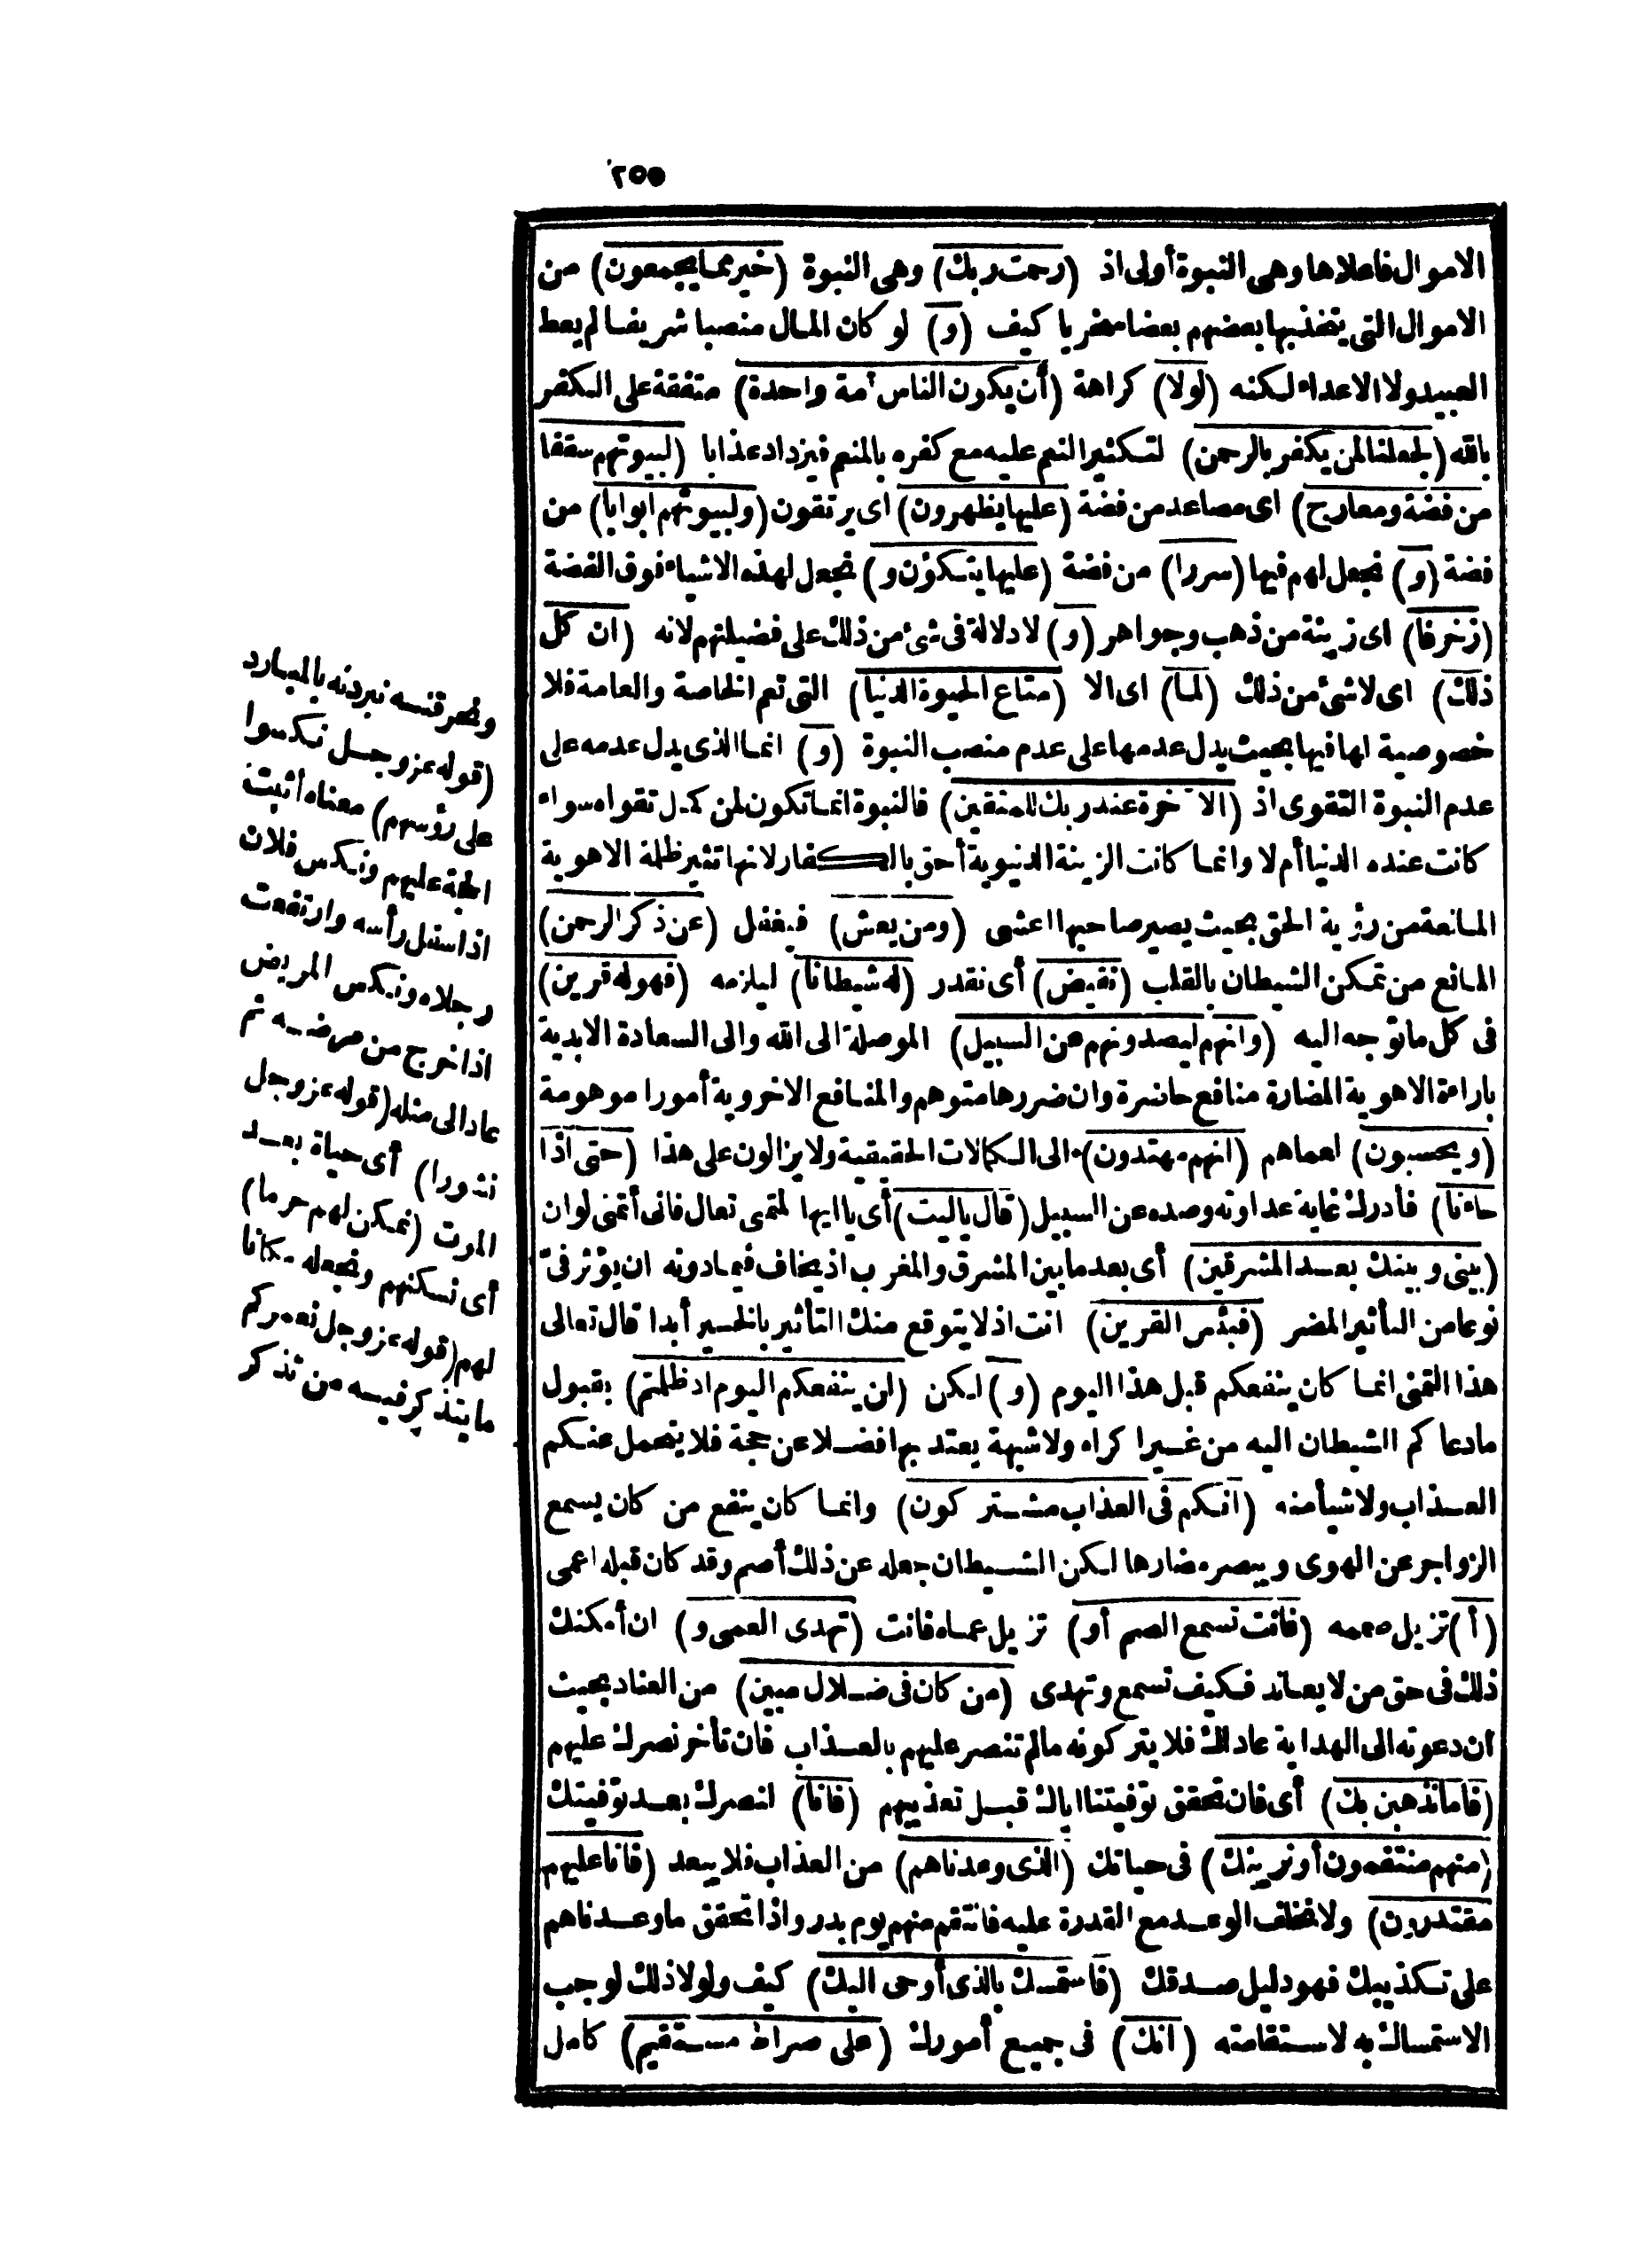 ٢٥٥
الاموال فاعلاها وهى النبوة أولى اذ (رحمت ربك) وهى النبوة (خير مما يجمعون) من
الاموال التى يتخذ بها بعضهم بعضا سخريا كيف (و) لو كان المال منصبا شريفا لم يعط
العبيد ولا الاعداء لكنه (لولا) كراهة (أن يكون الناس أمة واحدة) متفقة على الكفر
بالله (لجعلنا لمن يكفر بالرحمن) لتكثير النعم عليه مع كفره بالمنعم فيزداد عذابا (لبيوتهم سقفا
من فضة ومعارج) اى مصاعد من فضة (عليها يظهرون) اى يرتقون (ولبيوتهم ابوابا) من
فضة (و) نجعل لهم فيها (سررا) من فضة (عليها يتكؤن و) نجعل لهذه الاشياء فوق الفضة
(زخرفا) اى زينة من ذهب وجواهر (و) لا دلالة فى شئ من ذلك على فضيلتهم لانه (ان كل
ذلك) اى لا شئ من ذلك (لما) اى الا (متاع الحيوة الدنيا) التى تعم الخاصة والعامة فلا
خصوصية لها فيها بحيث يدل عدمها على عدم منصب النبوة (و) انما الذى يدل عدمه على
عدم النبوة التقوى اذ (الآخرة عند ربك للمتقين) فالنبوة انما تكون لمن كمل تقواه سواء
كانت عنده الدنيا أم لا وانما كانت الزينة الدنيوية أحق بالكفار لانها تثير ظلمة الاهوية
المانعة من رؤية الحق بحيث يصير صاحبها اعشى (ومن يعش) فيغفل (عن ذكر الرحمن)
المانع من تمكن الشيطان بالقلب (نقيض) أى نقدر (له شيطانا) ليلزمه (فهو له قرين)
فى كل ما توجه اليه (وانهم ليصدونهم عن السبيل) الموصلة الى الله والى السعادة الابدية
باراءة الاهوية المضارة منافع حاضرة وان ضررها متوهم والمنافع الاخروية أمورا موهومة
(ويحسبون) لعماهم (انهم مهتدون) الى الكمالات الحقيقية ولا يزالون على هذا (حتى اذا
جاءنا) فأدرك غاية عداوته وصده عن السبيل (قال ياليت) أى يا ايها المتمنى تعال فانى أتمنى لو ان
(بينى وبينك بعد المشرقين) أى بعد ما بين المشرق والمغرب اذ يخاف فيما دونه ان يؤثر فىّ
نوعا من التأثير المضر (فبئس القرين) انت اذ لا يتوقع منك التأثير بالخير أبدا قال تعالى
هذا التمنى انما كان ينفعكم قبل هذا اليوم (و) لكن (لن ينفعكم اليوم اذ ظلمتم) بقبول
ما دعاكم الشيطان اليه من غير اكراه ولا شبهة يعتد بها فضلا عن حجة فلا يتحمل عنكم
العذاب ولا شيأ منه (انكم فى العذاب مشتركون) وانما كان ينتفع من كان يسمع
الزواجر عن الهوى ويبصر مضارها لكن الشيطان جعله عن ذلك أصم وقد كان قبله اعمى
(أ) تزيل صممه (فانت تسمع الصم أو) تزيل عماه فانت (تهدى العمى و) ان أمكنك
ذلك فى حق من لا يعاند فكيف تسمع وتهدى (من كان فى ضلال مبين) من العناد بحيث
ان دعوته الى الهداية عاداك فلا يتركونه ما لم تنصر عليهم بالعذاب فان تأخر نصرك عليهم
(فاما نذهبن بك) أى فان تحقق توفيتنا اياك قبل تعذيبهم (فانا) ننصرك بعد توفيتك
(منهم منتقمون أو نرينك) فى حياتك (الذى وعدناهم) من العذاب فلا يبعد (فانا عليهم
مقتدرون) ولا تخلف الوعد مع القدرة عليه فانتقم منهم يوم بدر واذا تحقق ما وعدناهم
على تكذيبك فهو دليل صدقك (فاستمسك بالذى أوحى اليك) كيف ولولا ذلك لوجب
الاستمساك به لاستقامته (انك) فى جميع أمورك (على صراط مستقيم) كامل
(قوله عز وجل نكسوا
على رؤسهم) معناه أثبت
الحجة عليهم ونكس فلان
اذا سفل رأسه وارتفعت
رجلاه ونكس المريض
اذا خرج من مرضه ثم
عاد الى مثله (قوله عز وجل
نشورا) أى حياة بعد
الموت (نمكن لهم حرما)
أى نسكنهم ونجعله مكانا
لهم (قوله عز وجل نعمركم
ما يتذكر فيسه من تذكر